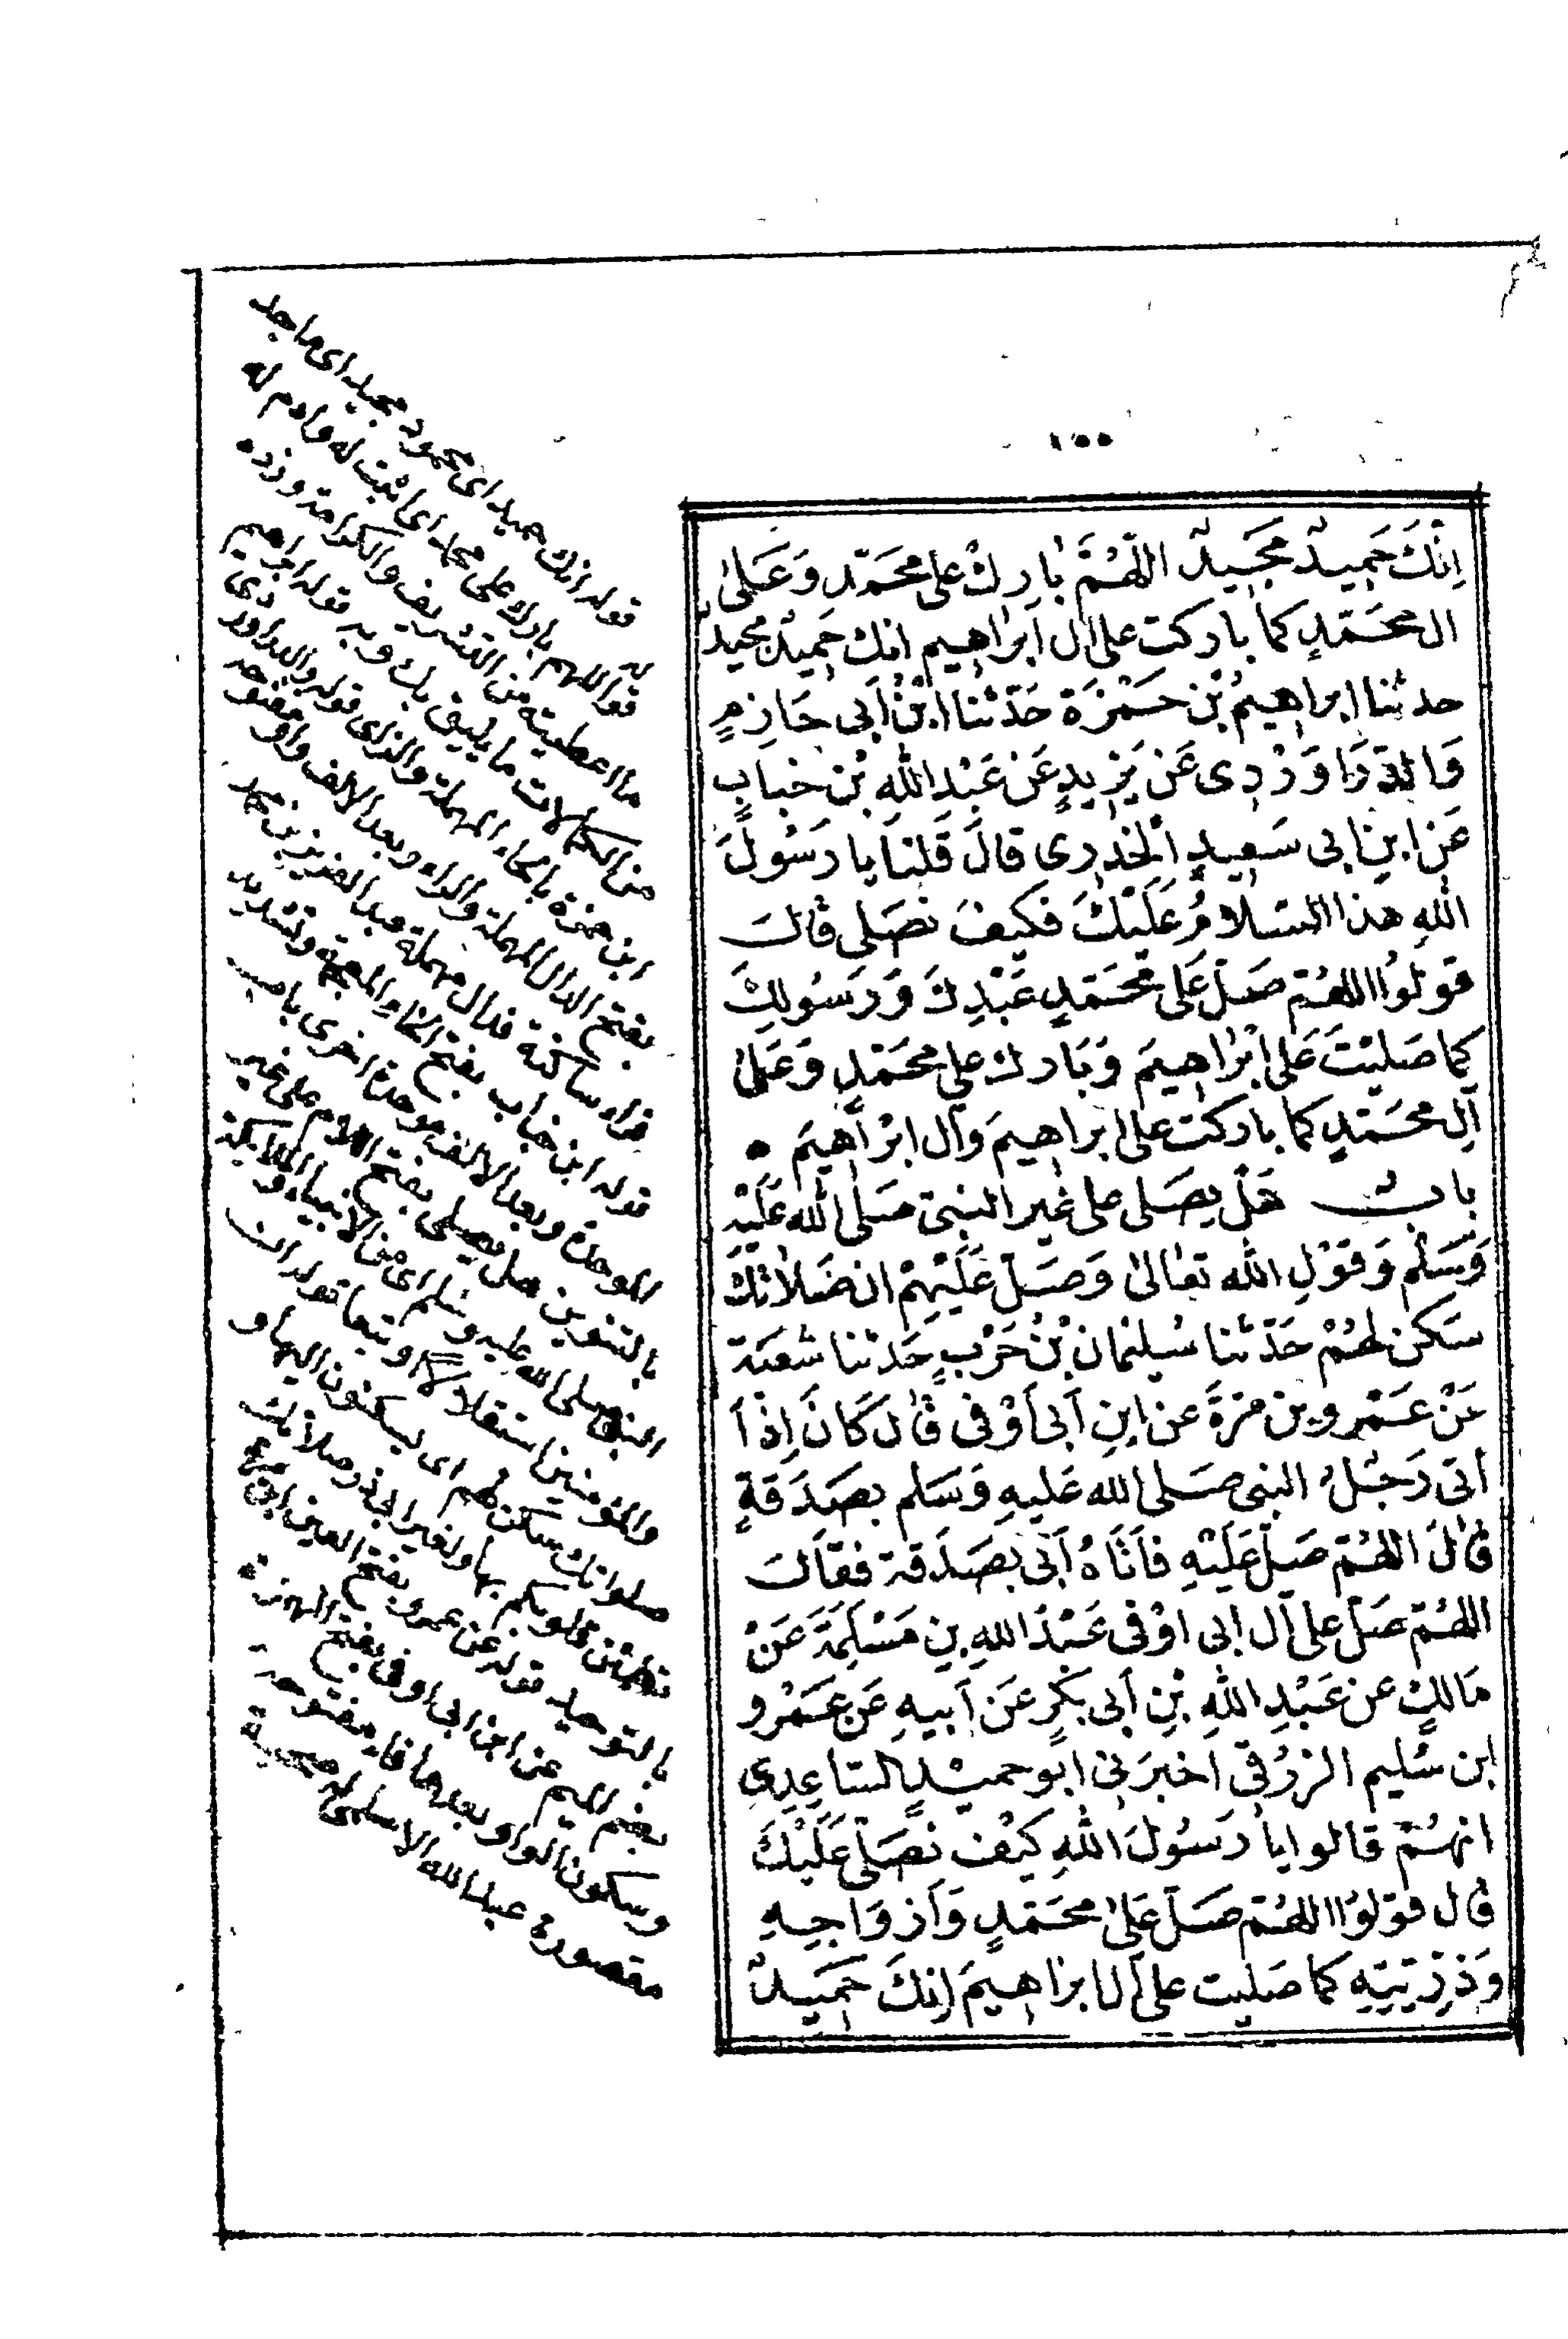 ١٥٥
اِنَّكَ حَمِيدٌ مَجِيدٌ اللَّهُمَّ بَارِكْ على محَمَّدٍ وَعَلىٰ
ال محَمَّدٍ كما باركت على ال اِبراهِيم انك حَمِيدٌ مجيدٌ
حدثنا ابراهيمُ بْن حَمْزَة حَدّثنا ابْنُ اَبى حَازِمٍ
وَالدَّرَاوَرْدِى عَن يَزِيدٍ عَن عَبْدِ اللهِ بْن خبابٍ
عَن ابنِ ابى سَعِيدٍ الْخدرِى قالَ قلنا يا رَسُولَ
اللهِ هذا السّلامُ عَلَيْكَ فكيفَ نصَلى قالَ
قولوُا اللهُمّ صَلّ عَلى محَمّدٍ عَبْدِكَ وَرَسُولِكَ
كما صَليْتَ عَلى ابْراهِيمَ وَبَارك على محَمّدٍ وَعَلىٰ
آلِ محَمّدٍ كما باركت على ابراهِيمَ وَآل ابْراهِيمَ
بابٌ هَلْ يصَلى على غيرِ النبىّ صَلى الله عَلَيْهِ
وَسَلّم وَقوْلِ الله تعالىٰ وَصَلّ عَلَيْهِمْ ان صَلاتكَ
سَكن لهُمْ حَدّثنا سُليْمان بْنُ حَرْبٍ حَدثنا شعبَة
عَنْ عَمْرو بن مرّةَ عن ابنِ اَبى اَوْفى قالَ كَانَ اِذَا
اَتى رَجُلُ النبى صَلى الله عَليهِ وَسَلم بصَدَقةٍ
قالَ اللهُمّ صَلّ عَلَيْهِ فأتَاهُ اَبى بصَدَقة فقالَ
اللهُمّ صَلّ على آل ابى اوْفى عَبْدُ اللهِ بن مَسْلَمَةَ عَنْ
مَالكٍ عن عَبْدِ اللهِ بْنِ اَبى بَكرٍ عَن اَبيهِ عَن عَمْرو
ابن سُليم الزرَقى اخبَرَنى ابو حميْدٍ السّاعِدِى
انهُمْ قالوا يا رَسُولَ اللهِ كيْف نُصَلى عَلَيْكَ
قال قولوُا اللهُمّ صَلّ عَلىٰ محَمّدٍ وَاَزوَاجِهِ
وَذرّيّتِهِ كما صَليت على آل ابراهِيمَ اِنكَ حَمِيدٌ
قوله انك حميد اى محمود مجيد اى ماجد
قوله اللهم بارك على محمد اى اثبت له وادم له
ما اعطيته من التشريف والكرامة وزده
من الكمالات ما يليق بك وبه قوله ابراهيم
ابن حمزة بالحاء المهملة والزاى قوله والدراوردى
بفتح الدال المهملة والراء وبعد الالف واو مفتوحة
فراء ساكنة فدال مهملة عبد العزيز بن محمد
قوله ابن خباب بفتح الخاء المعجمة وتشديد
الموحدة وبعد الالف موحدة اخرى باب
بالتنوين هل يصلى بفتح اللام على غير
النبى صلى الله عليه وسلم اى من الانبياء والملائكة
والمؤمنين استقلالا او تبعا قوله ان
صلواتك سكن لهم اى يسكنون اليها و
تطمئن قلوبهم بها ولغير ابى ذر صلاتك
بالتوحيد قوله عن عمرو بفتح العين ابن مرة
بضم الميم عن ابن ابى اوفى بفتح الهمزة
وسكون الواو بعدها فاء مفتوحة
مقصورة عبد الله الاسلمى له صحبة